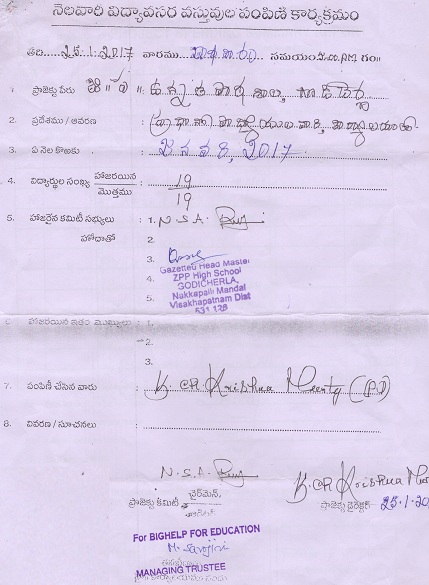 నెలవారి విద్యావసర వస్తువుల పంపిణి కార్యక్రమం
తేది: 25.1.2017 వారము బుధవారం సమయం గం॥
1. ప్రాజెక్టు పేరు : ఉన్నత పాఠశాల,
2. ప్రదేశము / ఆవరణ :
3. ఏ నెల కొఱకు : జనవరి, 2017
4. విద్యార్థుల సంఖ్య హాజరయిన : 19
మొత్తము 19
5. హాజరైన కమిటీ సభ్యులు : 1. N.S.A.
హోదాతో 2.
3.
Gazetted Head Master
4. ZPP High School
GODICHERLA,
5. Nakkapalli Mandal
Visakhapatnam Dist
531 126
6. హాజరయిన ఇతర ముఖ్యులు : 1.
2.
3.
7. పంపిణీ చేసిన వారు : K. CH Krishna Murty (PD)
8. వివరణ / సూచనలు :
N.S.A.
ప్రాజెక్టు కమిటీ ఛైర్మెన్,
K. CH Krishna Mur
ప్రాజెక్టు డైరెక్టర్ 25.1.20
For BIGHELP FOR EDUCATION
M. Sarojini
MANAGING TRUSTEE